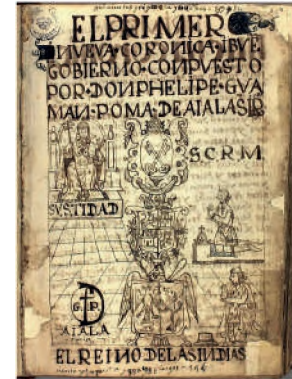 EL PRIMER
NVEVA·CORONICA·IBVE
GOBIERNO·CONPVESTO
POR·DON PHELIPE·GVA
MAN·POMA·DE AIALA SIR
S.C.R.M.
SVSTIDAD
G P
AIALA
EL REINO DE LAS INDIAS